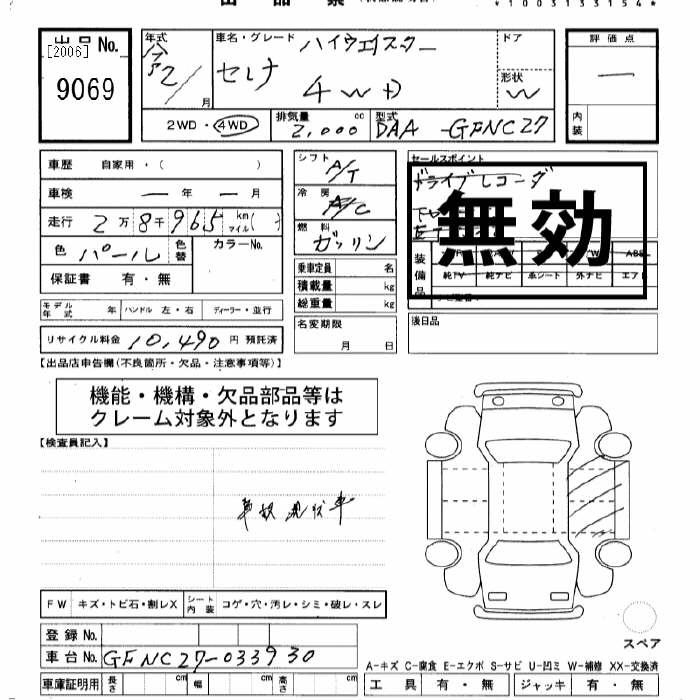 *1003133154*
出品No. [2006]
9069
年式 令2 / 月
車名・グレード ハイウェイスター
セレナ 4WD
ドア
形状 W
評価点 ー
内装
2WD・4WD
排気量 2,000 cc
型式 DAA-GFNC27
車歴 自家用・( )
車検 ー 年 ー 月
走行 2万8千965 km マイル( )
色 パール 色替 カラーNo.
保証書 有・無
シフト A/T
冷房 A/C
燃料 ガソリン
乗車定員 名
積載量 kg
総重量 kg
セールスポイント
ドライブレコーダ
無効
装備品
純TV 純ナビ 革シート 外ナビ エアB
モデル年式 年 ハンドル 左・右 ディーラー・並行
リサイクル料金 10,490 円 預託済
名変期限 月 日
後日品
【出品店申告欄(不良箇所・欠品・注意事項等)】
機能・機構・欠品部品等は
クレーム対象外となります
【検査員記入】
事故現状車
FW キズ・トビ石・割レX シート内装 コゲ・穴・汚レ・シミ・破レ・スレ
登録No.
車台No. GFNC27-033930
車庫証明用 長さ cm 幅 cm 高さ cm
スペア
A-キズ C-腐食 E-エクボ S-サビ U-凹ミ W-補修 XX-交換済
工具 有・無 ジャッキ 有・無